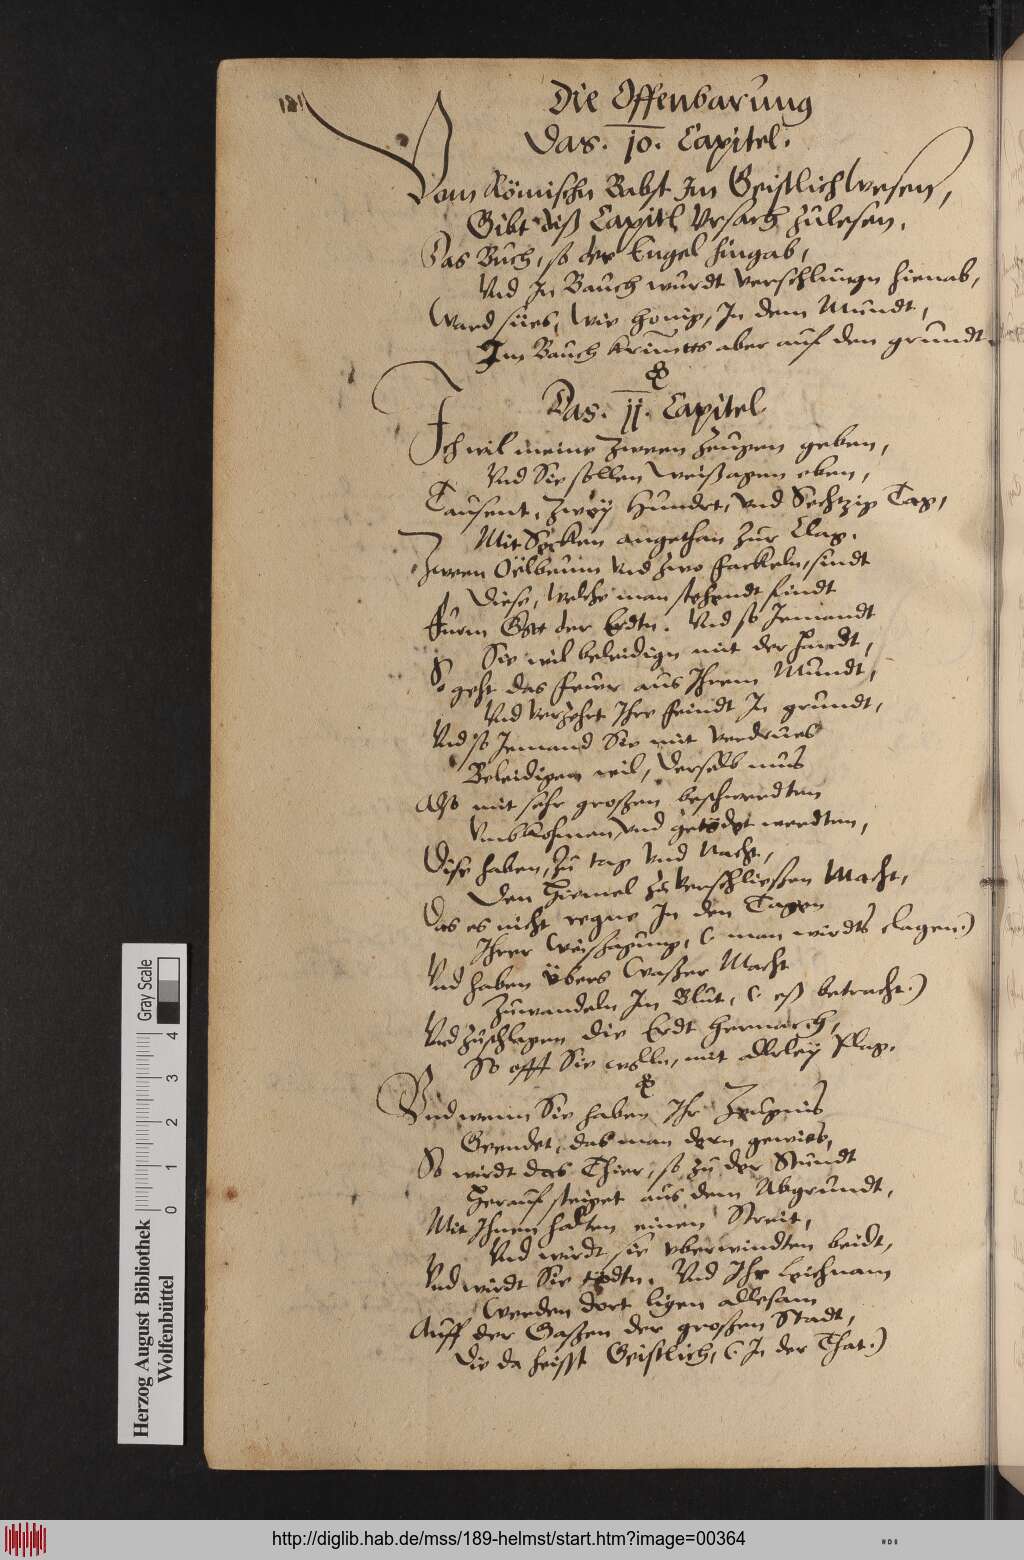 181
Die Offenbarung
Das. 10. Capitel.
Vom Römischn Babst Im Geistlich wesen,
Gibt diß Capitl Vrsach zulesen.
Das Buch, so der Engel hingab,
Vnd In Bauch wurdt verschlungn hienab,
Ward sües, wie honig, In dem Mundt,
Im Bauch krimts aber auf den grundt.
Das. 11. Capitel
Ich wil meine zween zeugen geben,
Vnd Sie sollen weißagen eben,
Tausent, zwey Hundert, vnd Sechtzig Tag,
Mit Secken angethan zur Clag.
Zween Oelbeum vnd zwo fackeln, sindt
Diese, welche man stehendt findt
Furm Gott der Erdtn. Vnd so Jemandt
Sie wil beleidign mit der handt,
So geht das feur aus Ihrem Mundt,
Vnd verzehrt Ihre feindt In grundt,
Vnd so Jemand Sie mit verdrues
Beleidigen wil, derselb mus
Also mit sehr großen beschwerdten
Vmbkohmen, vnd getödet werdten,
Dise haben, zu tag vnd Nacht,
Den Himmel zu verschließen Macht,
Das es nicht regne In den Tagen
Ihrer Weißagung, (: man wirdts clagen:)
Vnd haben übers Waßer Macht
Zuwandeln In Blut, (: eß betracht:)
Vnd zuschlagen die Erdt hernach,
So offt Sie wolln, mit allerley Plag.
Vnd wenn Sie haben Ihr Zeugnis
Geendet, das man dern gewies,
So wirdt das Thier, so zu der Stundt
Herauf steiget aus dem Abgrundt,
Mit Ihnen halten einen Streit,
Vnd wirdt sie vberwindten beidt,
Vnd wirdt Sie tödtn. Vnd Ihr leichnam
Werden dort ligen allesam
Auff der Gaßen der großen Stadt,
Die da heisst Geistlich, (: In der That:)
Herzog August Bibliothek
Wolfenbüttel
0 1 2 3 4
Gray Scale
http://diglib.hab.de/mss/189-helmst/start.htm?image=00364